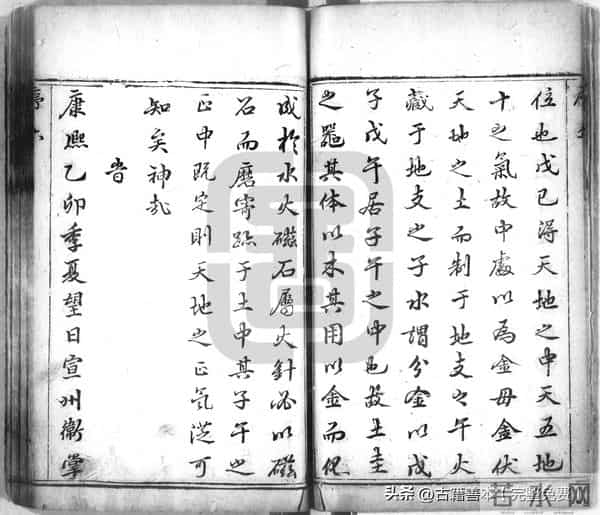 位也戊己得天地之中天五地
十之氣故中處以為金母金伏
天地之土而制于地支之午火
藏于地支之子水謂分金以戊
子戊午居子午之中也故土圭
之器其体以木其用以金而化
成於水火磁石屬火針必以磁
石而磨寄跡于土中其子午之
正中既定則天地之正氣從可
知矣神哉
旹
康熙乙卯季夏望日宣州衡掌
序六
头条 @古籍善本